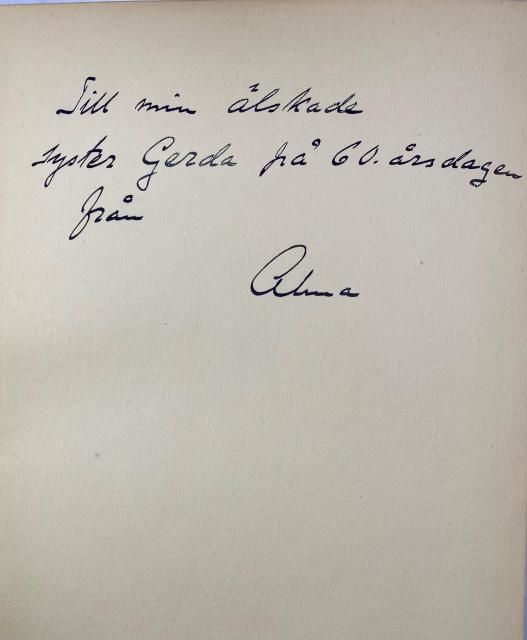 Till min älskade
syster Gerda på 60. årsdagen
från
Alma